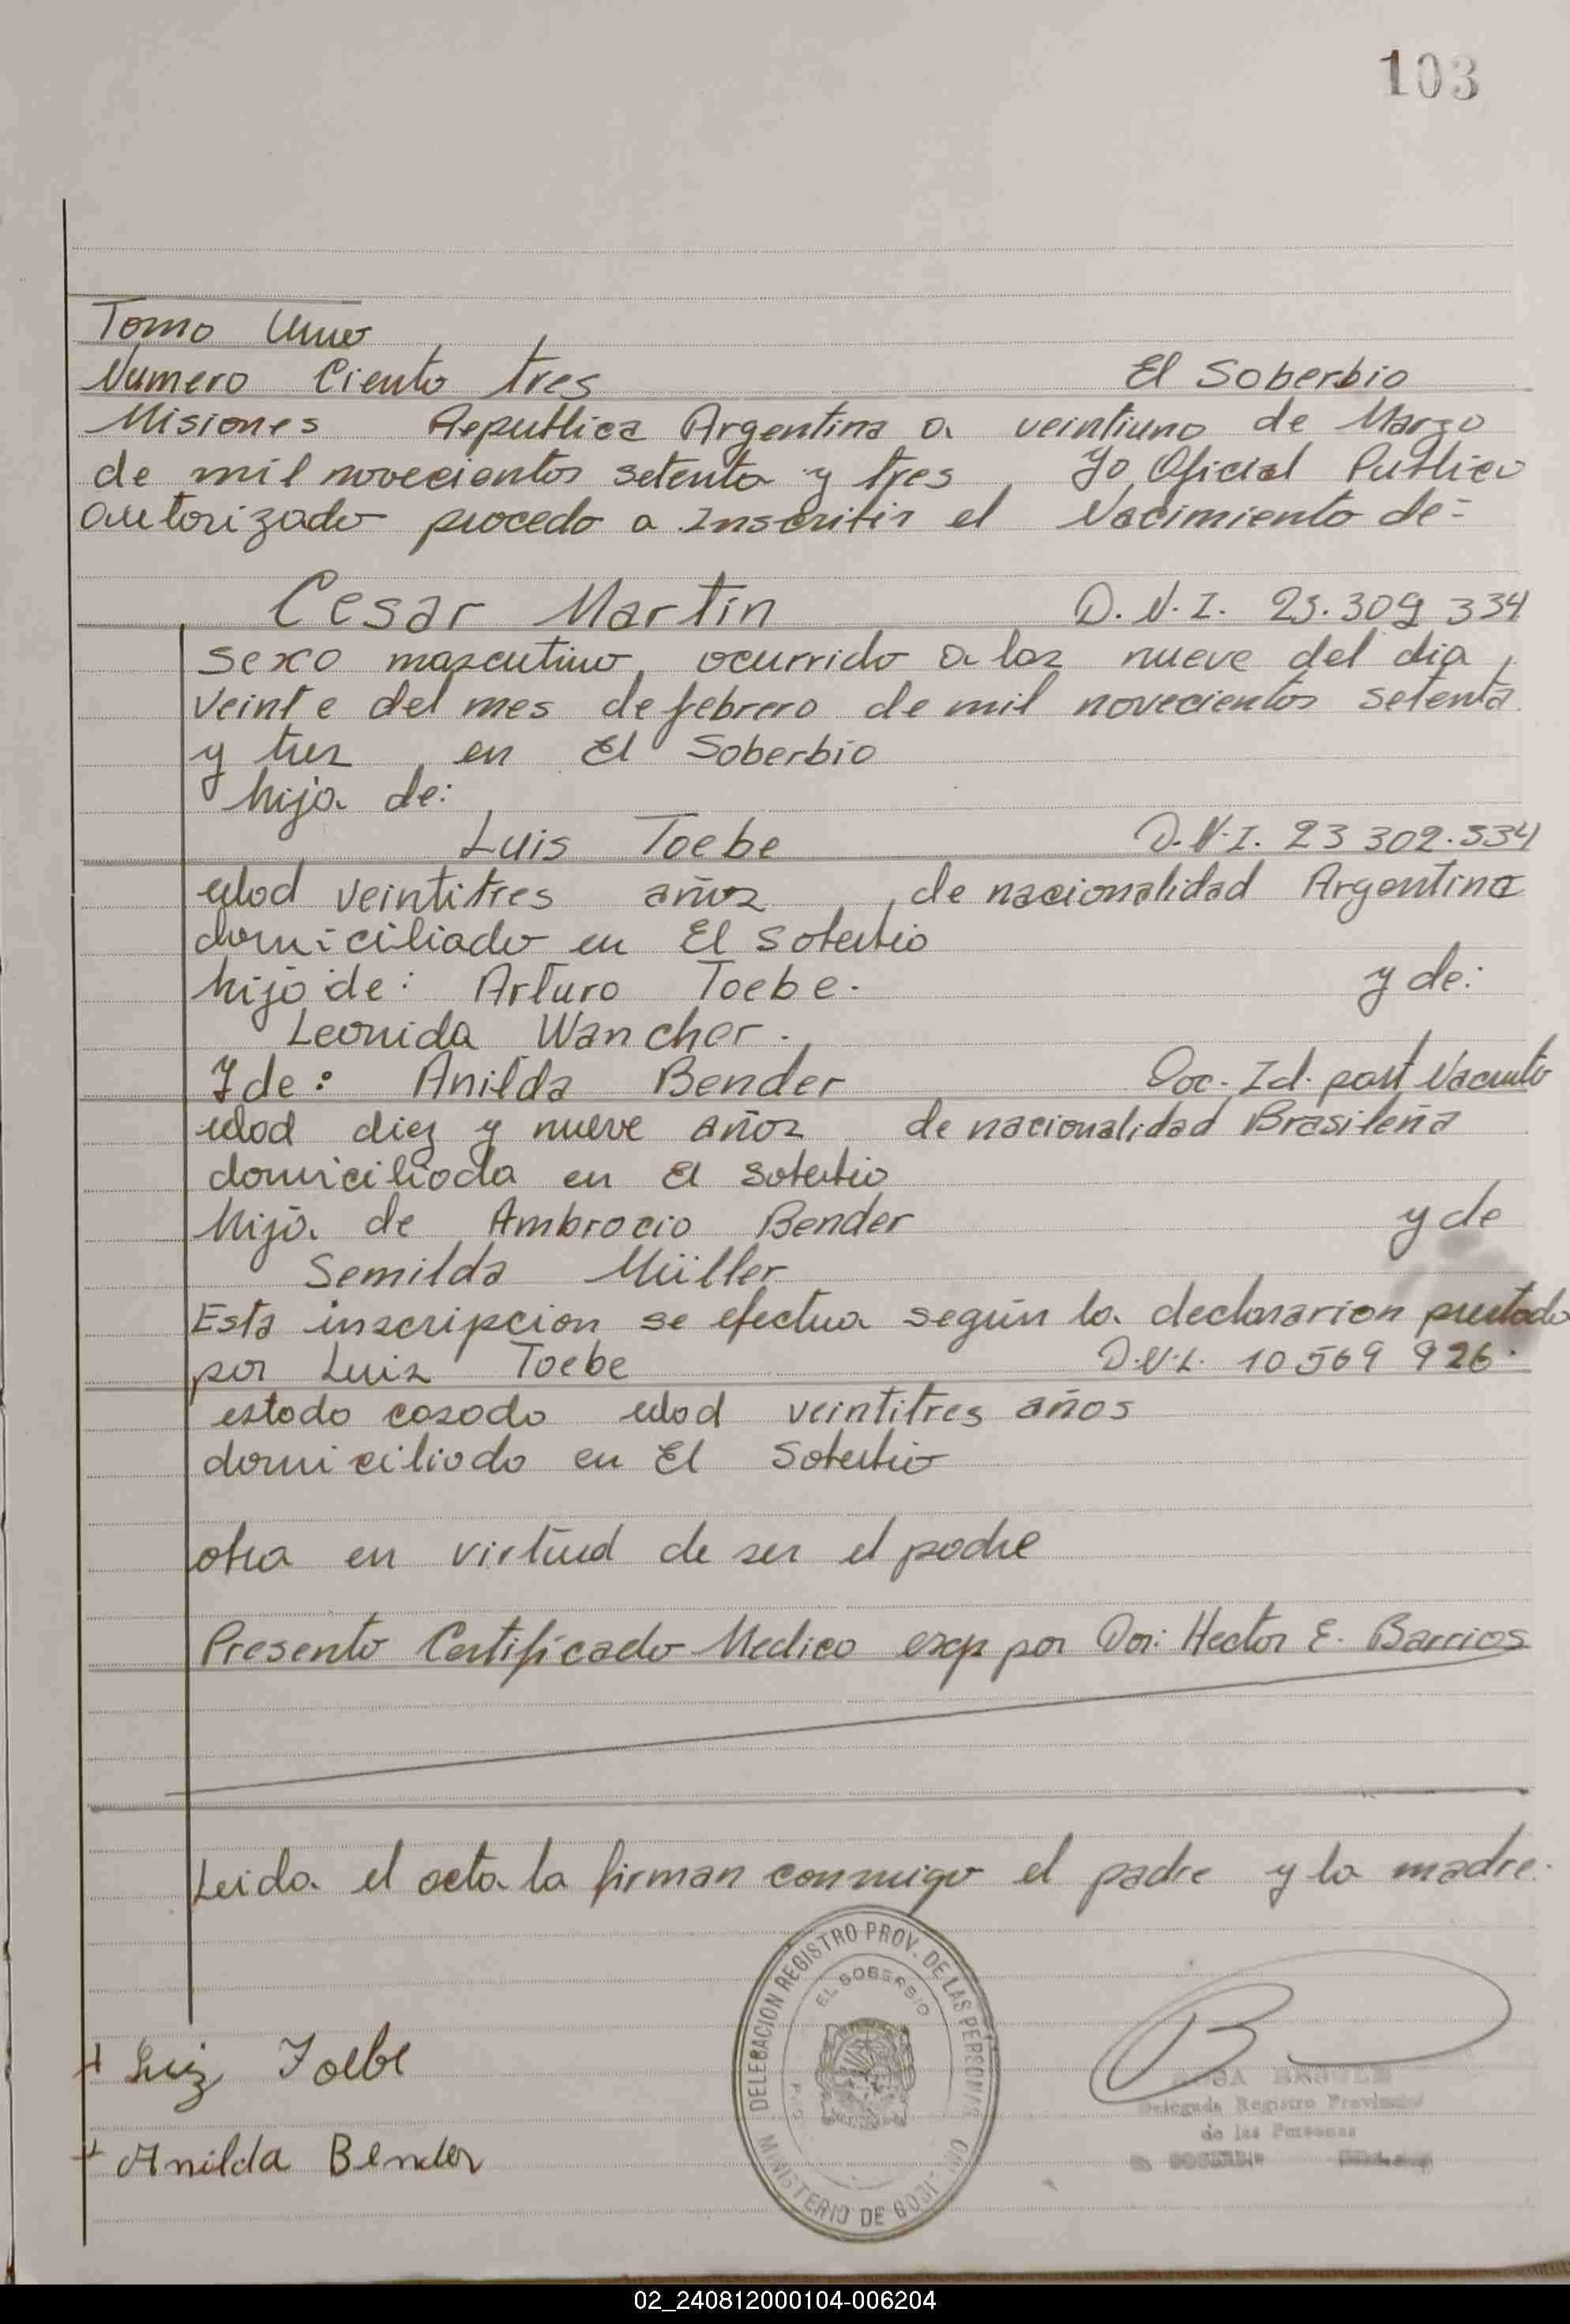 103
Tomo Uno
Numero Ciento tres El Soberbio
Misiones Republica Argentina a veintiuno de Marzo
de mil novecientos setenta y tres, Yo Oficial Publico
autorizado procedo a Inscribir el Nacimiento de=
Cesar Martin D.N.I. 23.309 334
sexo masculino, ocurrido a las nueve del dia,
veinte del mes de febrero de mil novecientos setenta
y tres, en El Soberbio
hijo de:
Luis Toebe D.N.I. 23 302.334
edad veintitres años, de nacionalidad Argentina
domiciliado en El Soberbio
hijo de: Arturo Toebe. y de:
Leonida Wancher.
Y de: Anilda Bender Doc. Id. part Nacmto
edad diez y nueve años de nacionalidad Brasileña
domiciliada en El Soberbio
hija de Ambrocio Bender y de
Semilda Müller
Esta inscripcion se efectua según la declaracion prestada
por Luis Toebe D.N.I. 10 569 926.
estado casado edad veintitres años
domiciliado en El Soberbio
obra en virtud de ser el padre
Presento Certificado Medico exp por Dor: Hector E. Barrios
Leida el acta la firman conmigo el padre y la madre.
DELEGACION REGISTRO PROV. DE LAS PERSONAS
EL SOBERBIO
MINISTERIO DE GOBIERNO
+ Luiz Toebe
+ Anilda Bender
Delegada Registro Provincial
de las Personas
02_240812000104-006204